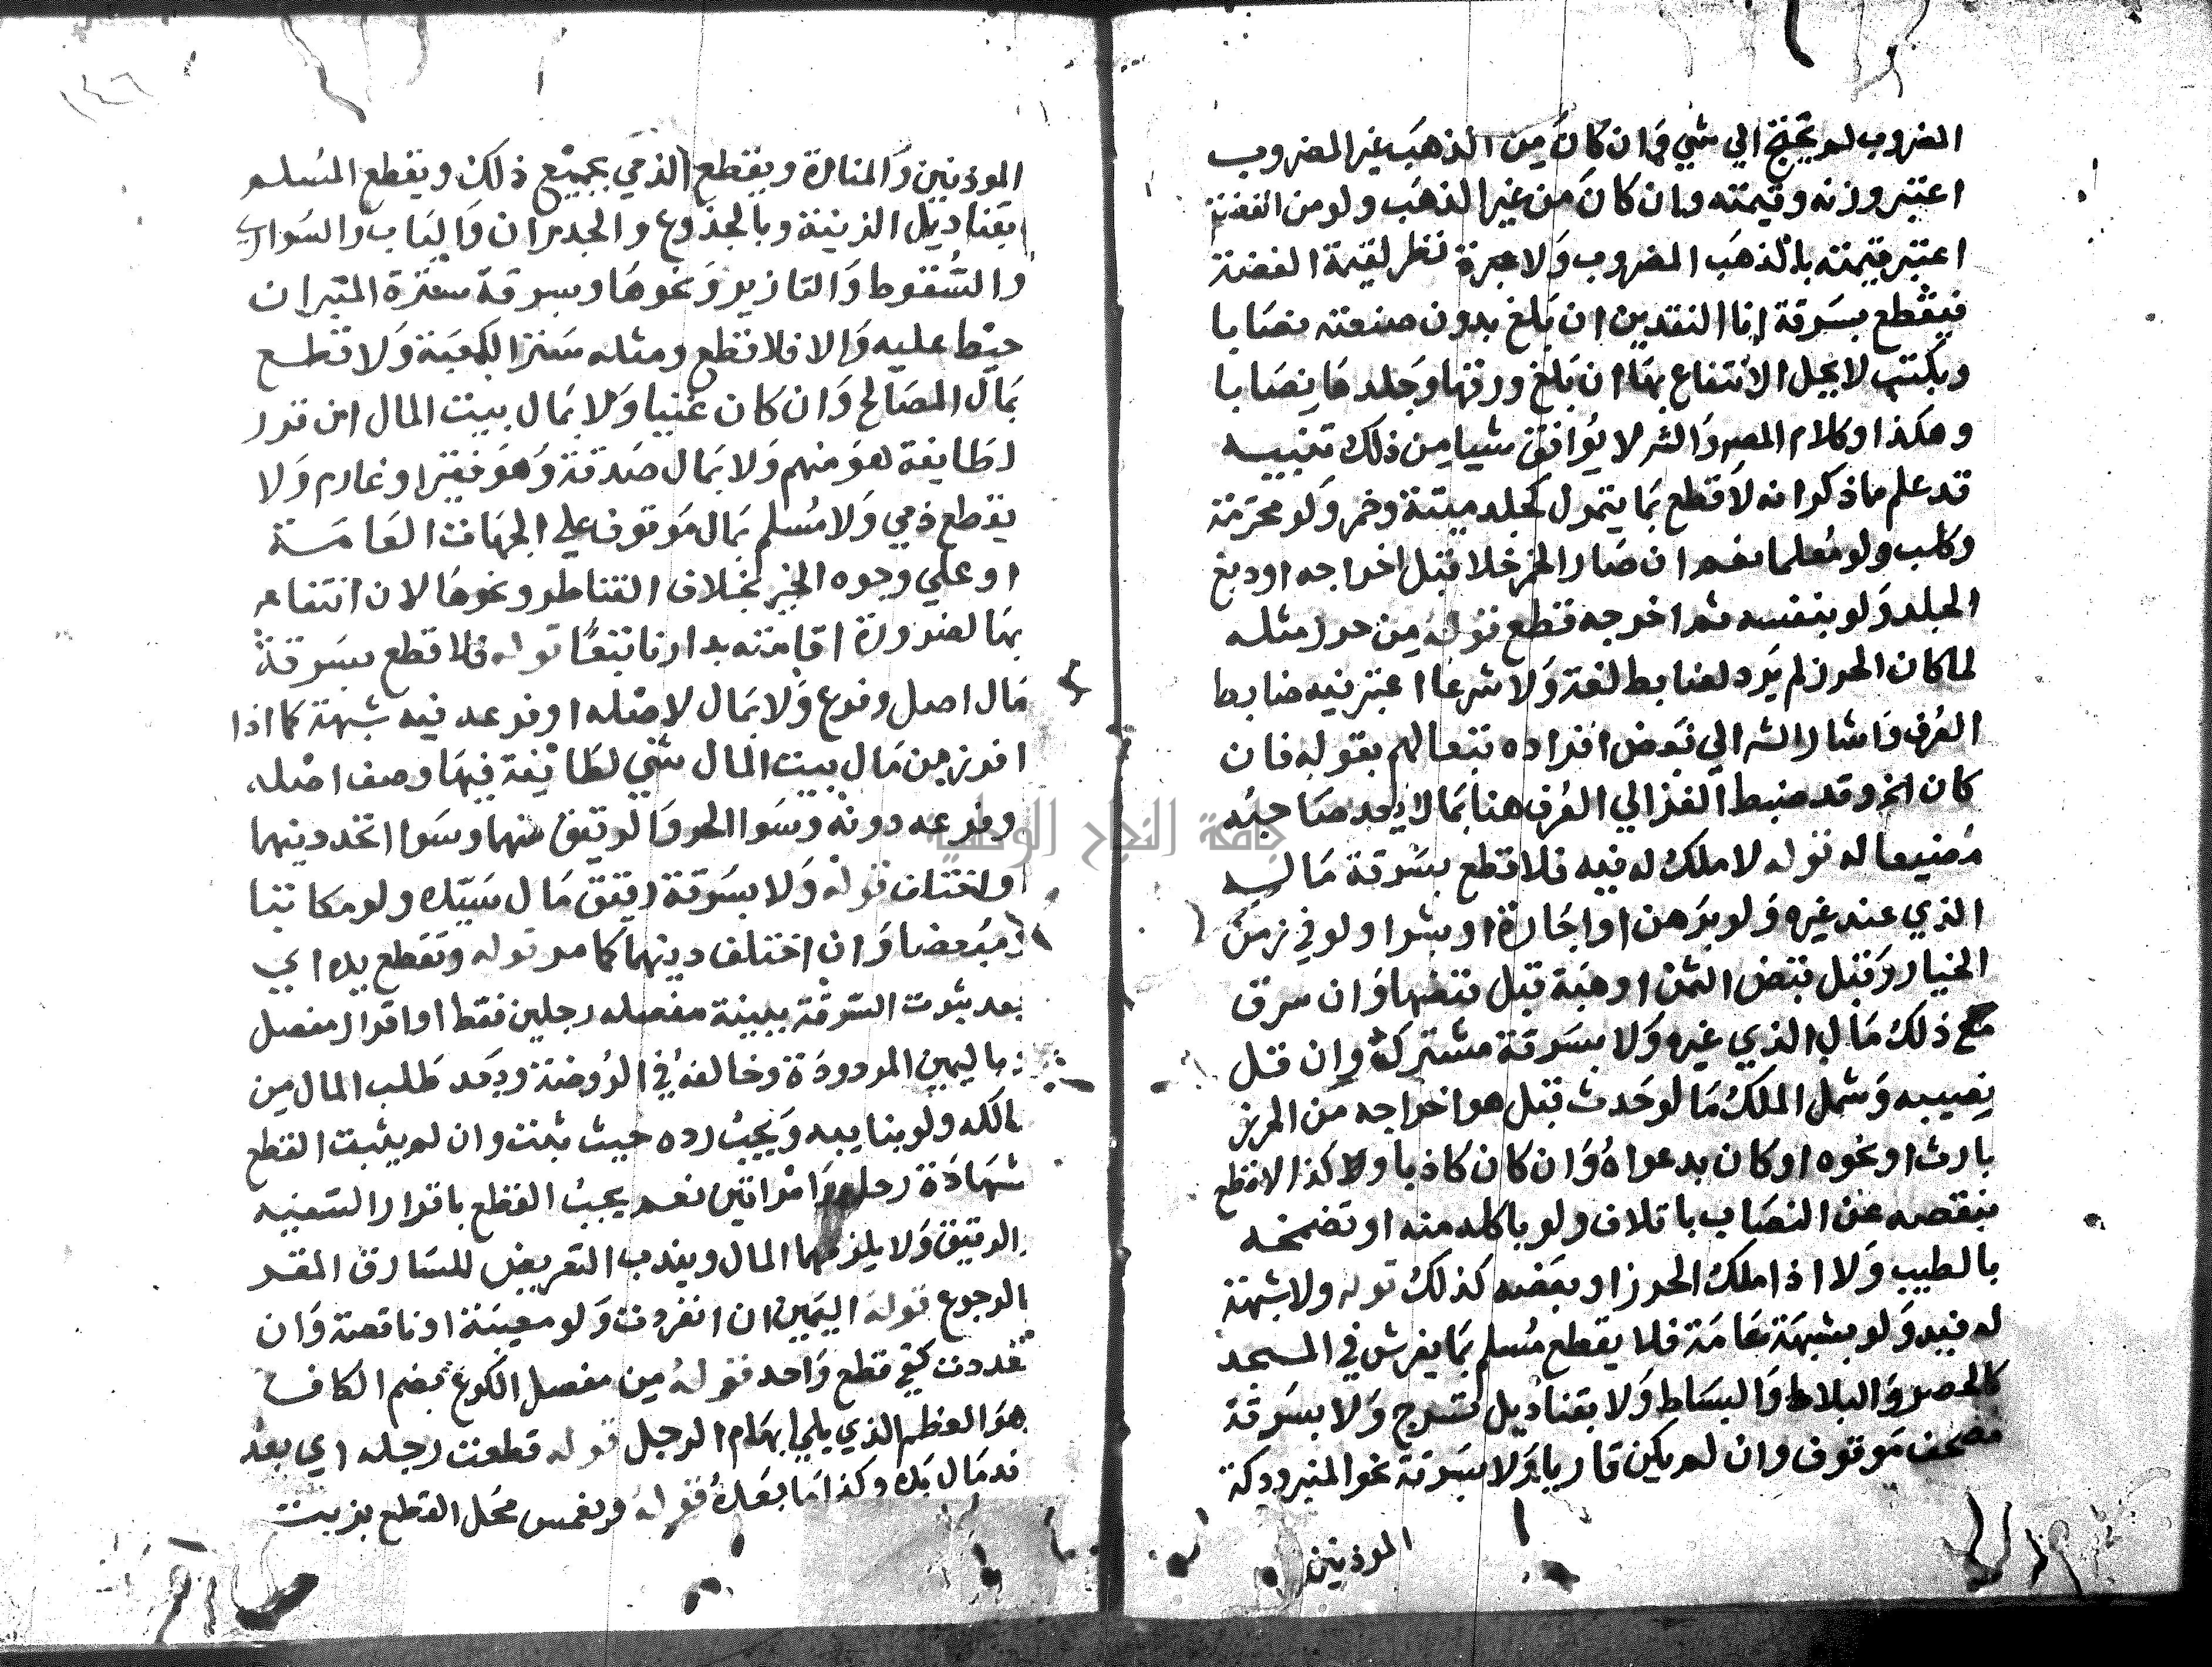 المضروب لم يحتج الي شي وان كان من الذهب غير المضروب
اعتبر وزنه وقيمته وان كان من غير الذهب ولو من الفضة
اعتبر قيمته بالذهب المضروب ولا عبرة نظر لقيمة الفضة
فيقطع بسرقة انا النقدين ان بلغ بدون صنعته نصابا
وبكتب لا يحل الانتفاع بها ان بلغ ورقها وجلدها نصابا
وهكذا وكلام المصر والشر لا يوافق شيا من ذلك تنبيه
قد علم ماذكرانه لا قطع بما يتمول كجلد ميتة وخمر ولو محترمة
وكلب ولو معلما نعم ان صار الخمر خلا قبل اخراجه او دبغ
الجلد ولو بنفسه ثم اخرجه قطع قوله من حرز مثله
لما كان الحرز لم يرد له ضابط لغة ولا شرعا اعتبر فيه ضابط
العرف واشار الشر الي بعض افراده تبعا لهم بقوله فان
كان الخ وقد ضبط الغزالي العرف هنا بما لا يعد صاحبه
مضيعا له قوله لا ملك له فيه فلا قطع بسرقة ماليه
الذي عند غيره ولو برهن او اجارة او بشرا ولو في زمن
الخيار وقبل قبض الثمن او هبة قبل قبضها وان سرق
مع ذلك مال الذي غيره ولا بسرقة مشترك وان قل
نصيبه وشمل الملك مالو حدث قبل هو اخراجه من الحرز
بارث او نحوه او كان بدعواه وان كان كاذبا ولا كذا لا قطع
بنقصه عن النصاب باتلاف ولو باكله منه او تضمخه
بالطيب ولا اذا ملك الحرز او بعضه كذلك قوله ولا شبهة
له فيه ولو بشبهة عامة فلا يقطع مسلم بما يفرش في المسجد
كالحصر والبلاط والبساط ولا بقناديل تسرج ولا بسرقة
مصحف موقوف وان لم يكن قاريا ولا بسرقة نحو المنبر ودكة
الموذنين
١٤٦
الموذنين والمنارة ويقطع الذمي بجميع ذلك ويقطع المسلم
بقناديل الزينة وبالجذوع والجدران والباب والسواري
والسقوط والتازير ونحوها وبسرقة سترة المنبران
خيط عليه والا فلا قطع ومثله ستر الكعبة ولا قطع
بمال المصالح وان كان غنيا ولا بمال بيت المال ان قرر
لطايفة هو منهم ولا بمال صدقة وهو فقير او غارم ولا
يقطع ذمي ولا مسلم بمال موقوف علي الجهات العامة
او علي وجوه الخير بخلاف القناطر ونحوها لان انتفاعه
بها لضرورة اقامته بدارنا تبعا قوله فلا قطع بسرقة
مال اصل وفرع ولا بمال لاصله او فرعه فيه شبهة كما اذا
افرز من مال بيت المال شي لطايفة فيها وصف اصله
وفرعه دونه وسوا الحر والرقيق منهما وسوا اتحد دينهما
او اختلف قوله ولا بسرقة رقيق مال سيده ولو مكاتبا
ومبعضا وان اختلف دينهما كما مر قوله وتقطع يده اي
بعد ثبوت السرقة ببينة مفصله رجلين فقط او اقرار مفصل
باليمين المردودة وخالفه في الروضة وبعد طلب المال من
مالكه ولو بنايبه ويجب رده حيث ثبت وان لم يثبت القطع
شهادة رجل وامراتين نعم يجب القطع باقرار السفيه
والرقيق ولا يلزمهما المال ويندب التعريض للسارق المقر
بالرجوع قوله اليمين ان انفردت ولو معيبة او ناقصة وان
تعددت كفي قطع واحد قوله من مفصل الكوع بضم الكاف
هو العظم الذي يلي ابهام الرجل قوله قطعت رجله اي بعد
اندمال يده وكذا ما بعده قوله ويغمس محل القطع بزيت